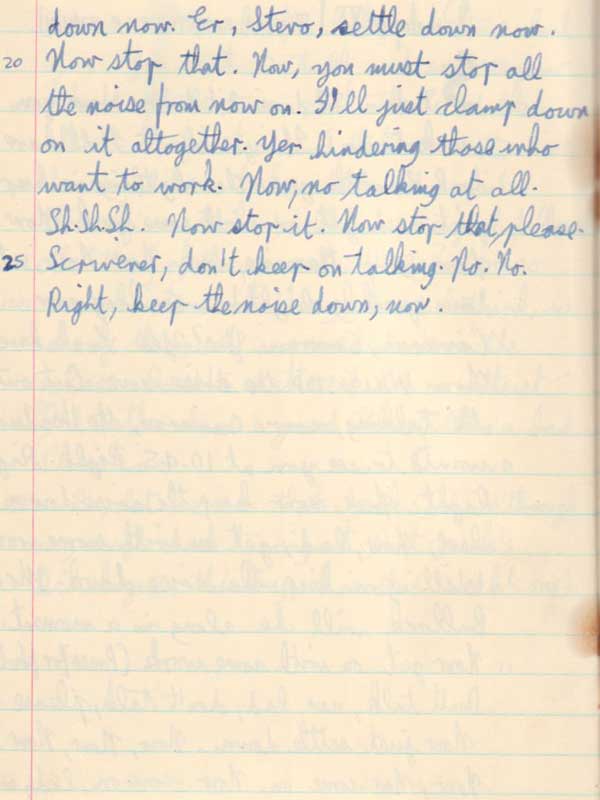 down now. Er, Stevo, settle down now.
20 Now stop that. Now, you must stop all
the noise from now on. I'll just clamp down
on it altogether. Yer hindering those who
want to work. Now, no talking at all.
Sh.Sh.Sh. Now stop it. Now stop that, please.
25 Scrivener, don't keep on talking. No. No.
Right, keep the noise down, now.